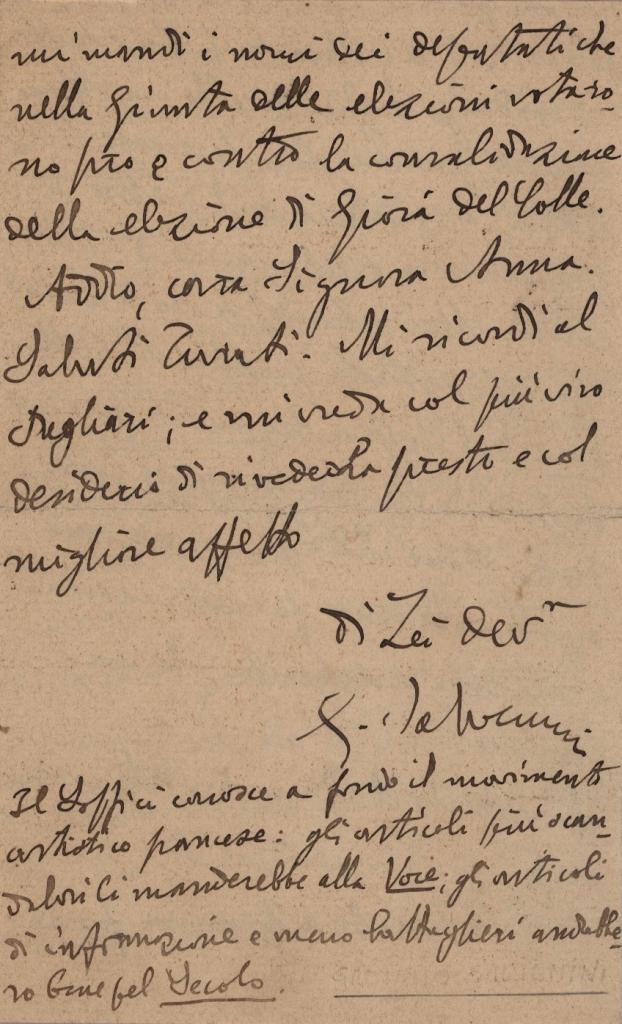 mi mandi i nomi dei deputati che
nella Giunta delle elezioni votaro-
no pro e contro la convalidazione
della elezione di Gioia del Colle.
Addio, cara Signora Anna.
Saluti Turati. Mi ricordi al
Pugliesi; e mi creda col più vivo
desiderio di rivederLa presto e col
migliore affetto
di Lei dev.
G. Salvemini
Il Soffici conosce a fondo il movimento
artistico francese: gli articoli più scan-
dalosi li manderebbe alla Voce; gli articoli
di informazione e meno battaglieri andrebbe-
ro bene pel Secolo.